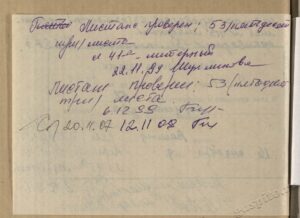 Листаж проверен: 53/пятьдесят
три/листа
и 41а - литерный
22.11.99
Листаж проверен: 53/пятьдесят
три/листа
6.12.99
20.11.07 12.11.08